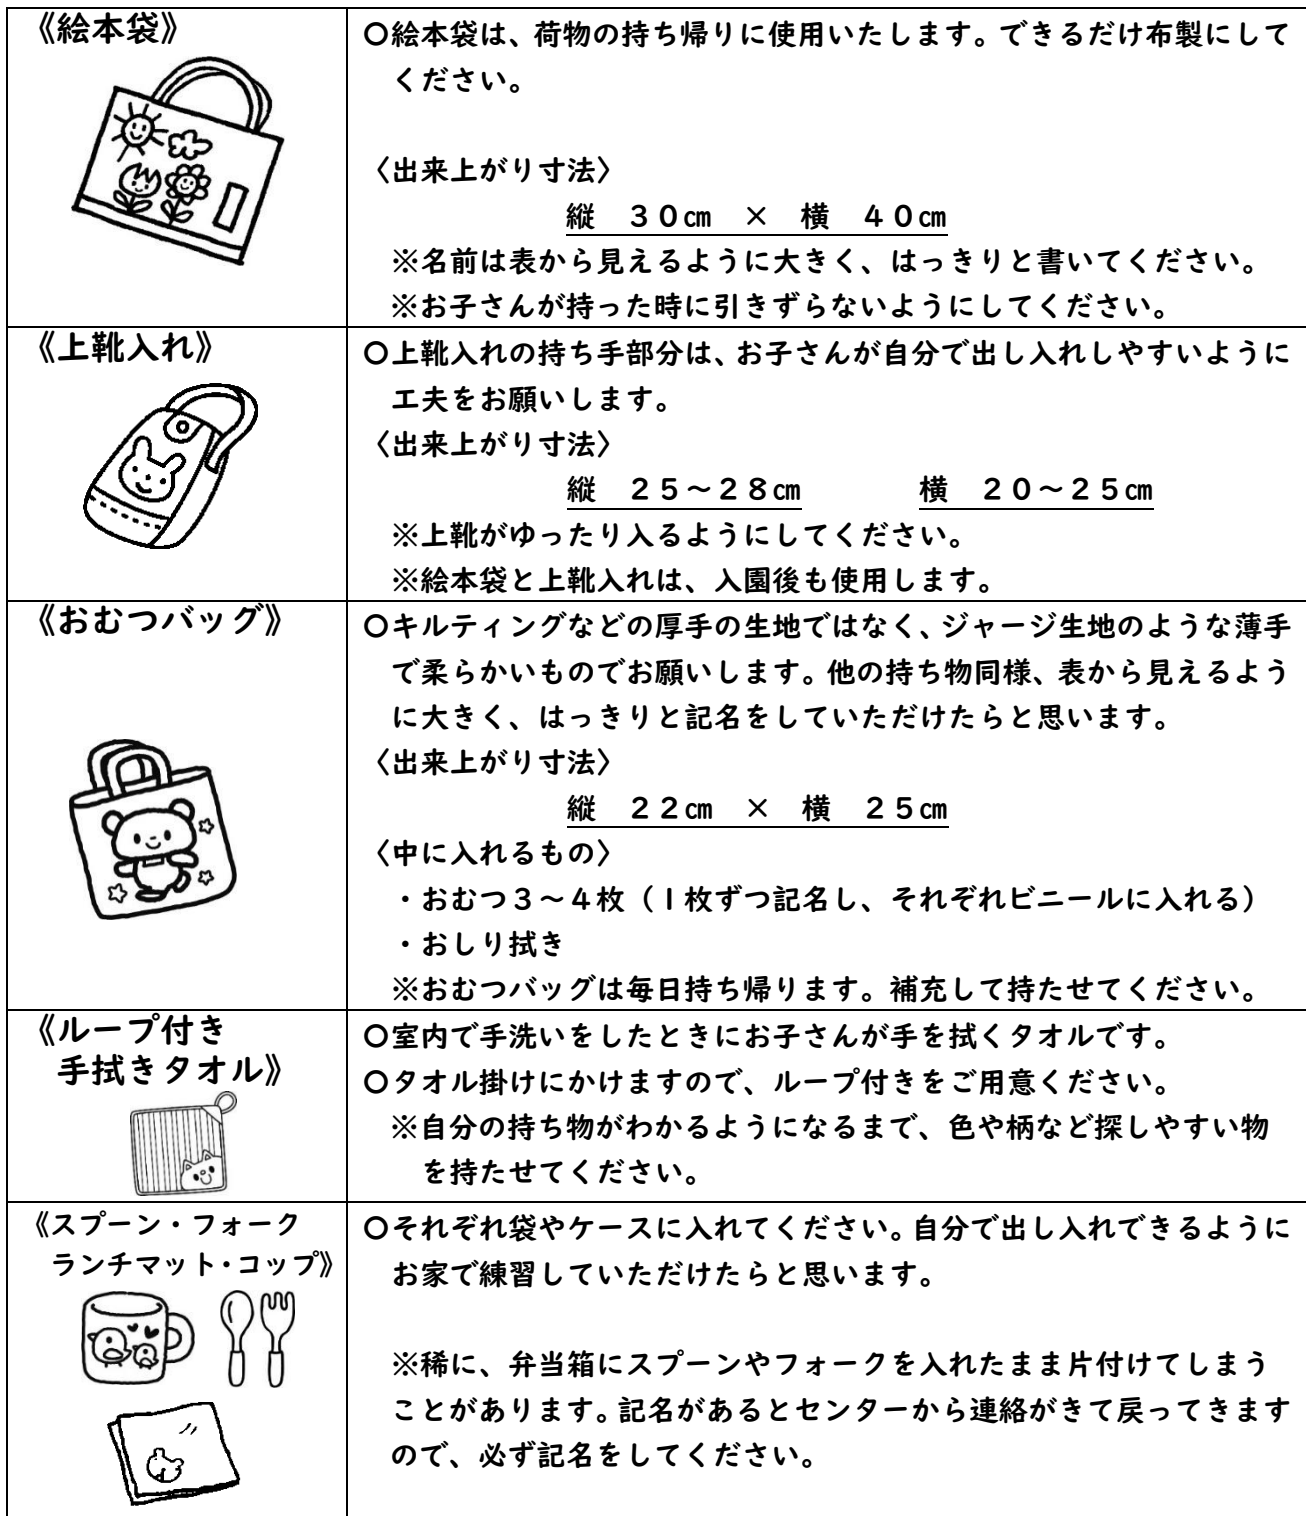 《絵本袋》
〇絵本袋は、荷物の持ち帰りに使用いたします。できるだけ布製にして
ください。
〈出来上がり寸法〉
縦　３０㎝　×　横　４０㎝
※名前は表から見えるように大きく、はっきりと書いてください。
※お子さんが持った時に引きずらないようにしてください。
《上靴入れ》
〇上靴入れの持ち手部分は、お子さんが自分で出し入れしやすいように
工夫をお願いします。
〈出来上がり寸法〉
縦　２５～２８㎝　　　　横　２０～２５㎝
※上靴がゆったり入るようにしてください。
※絵本袋と上靴入れは、入園後も使用します。
《おむつバッグ》
〇キルティングなどの厚手の生地ではなく、ジャージ生地のような薄手
で柔らかいものでお願いします。他の持ち物同様、表から見えるよう
に大きく、はっきりと記名をしていただけたらと思います。
〈出来上がり寸法〉
縦　２２㎝　×　横　２５㎝
〈中に入れるもの〉
・おむつ３～４枚（１枚ずつ記名し、それぞれビニールに入れる）
・おしり拭き
※おむつバッグは毎日持ち帰ります。補充して持たせてください。
《ループ付き
手拭きタオル》
〇室内で手洗いをしたときにお子さんが手を拭くタオルです。
〇タオル掛けにかけますので、ループ付きをご用意ください。
※自分の持ち物がわかるようになるまで、色や柄など探しやすい物
を持たせてください。
《スプーン・フォーク
ランチマット・コップ》
〇それぞれ袋やケースに入れてください。自分で出し入れできるように
お家で練習していただけたらと思います。
※稀に、弁当箱にスプーンやフォークを入れたまま片付けてしまう
ことがあります。記名があるとセンターから連絡がきて戻ってきます
ので、必ず記名をしてください。